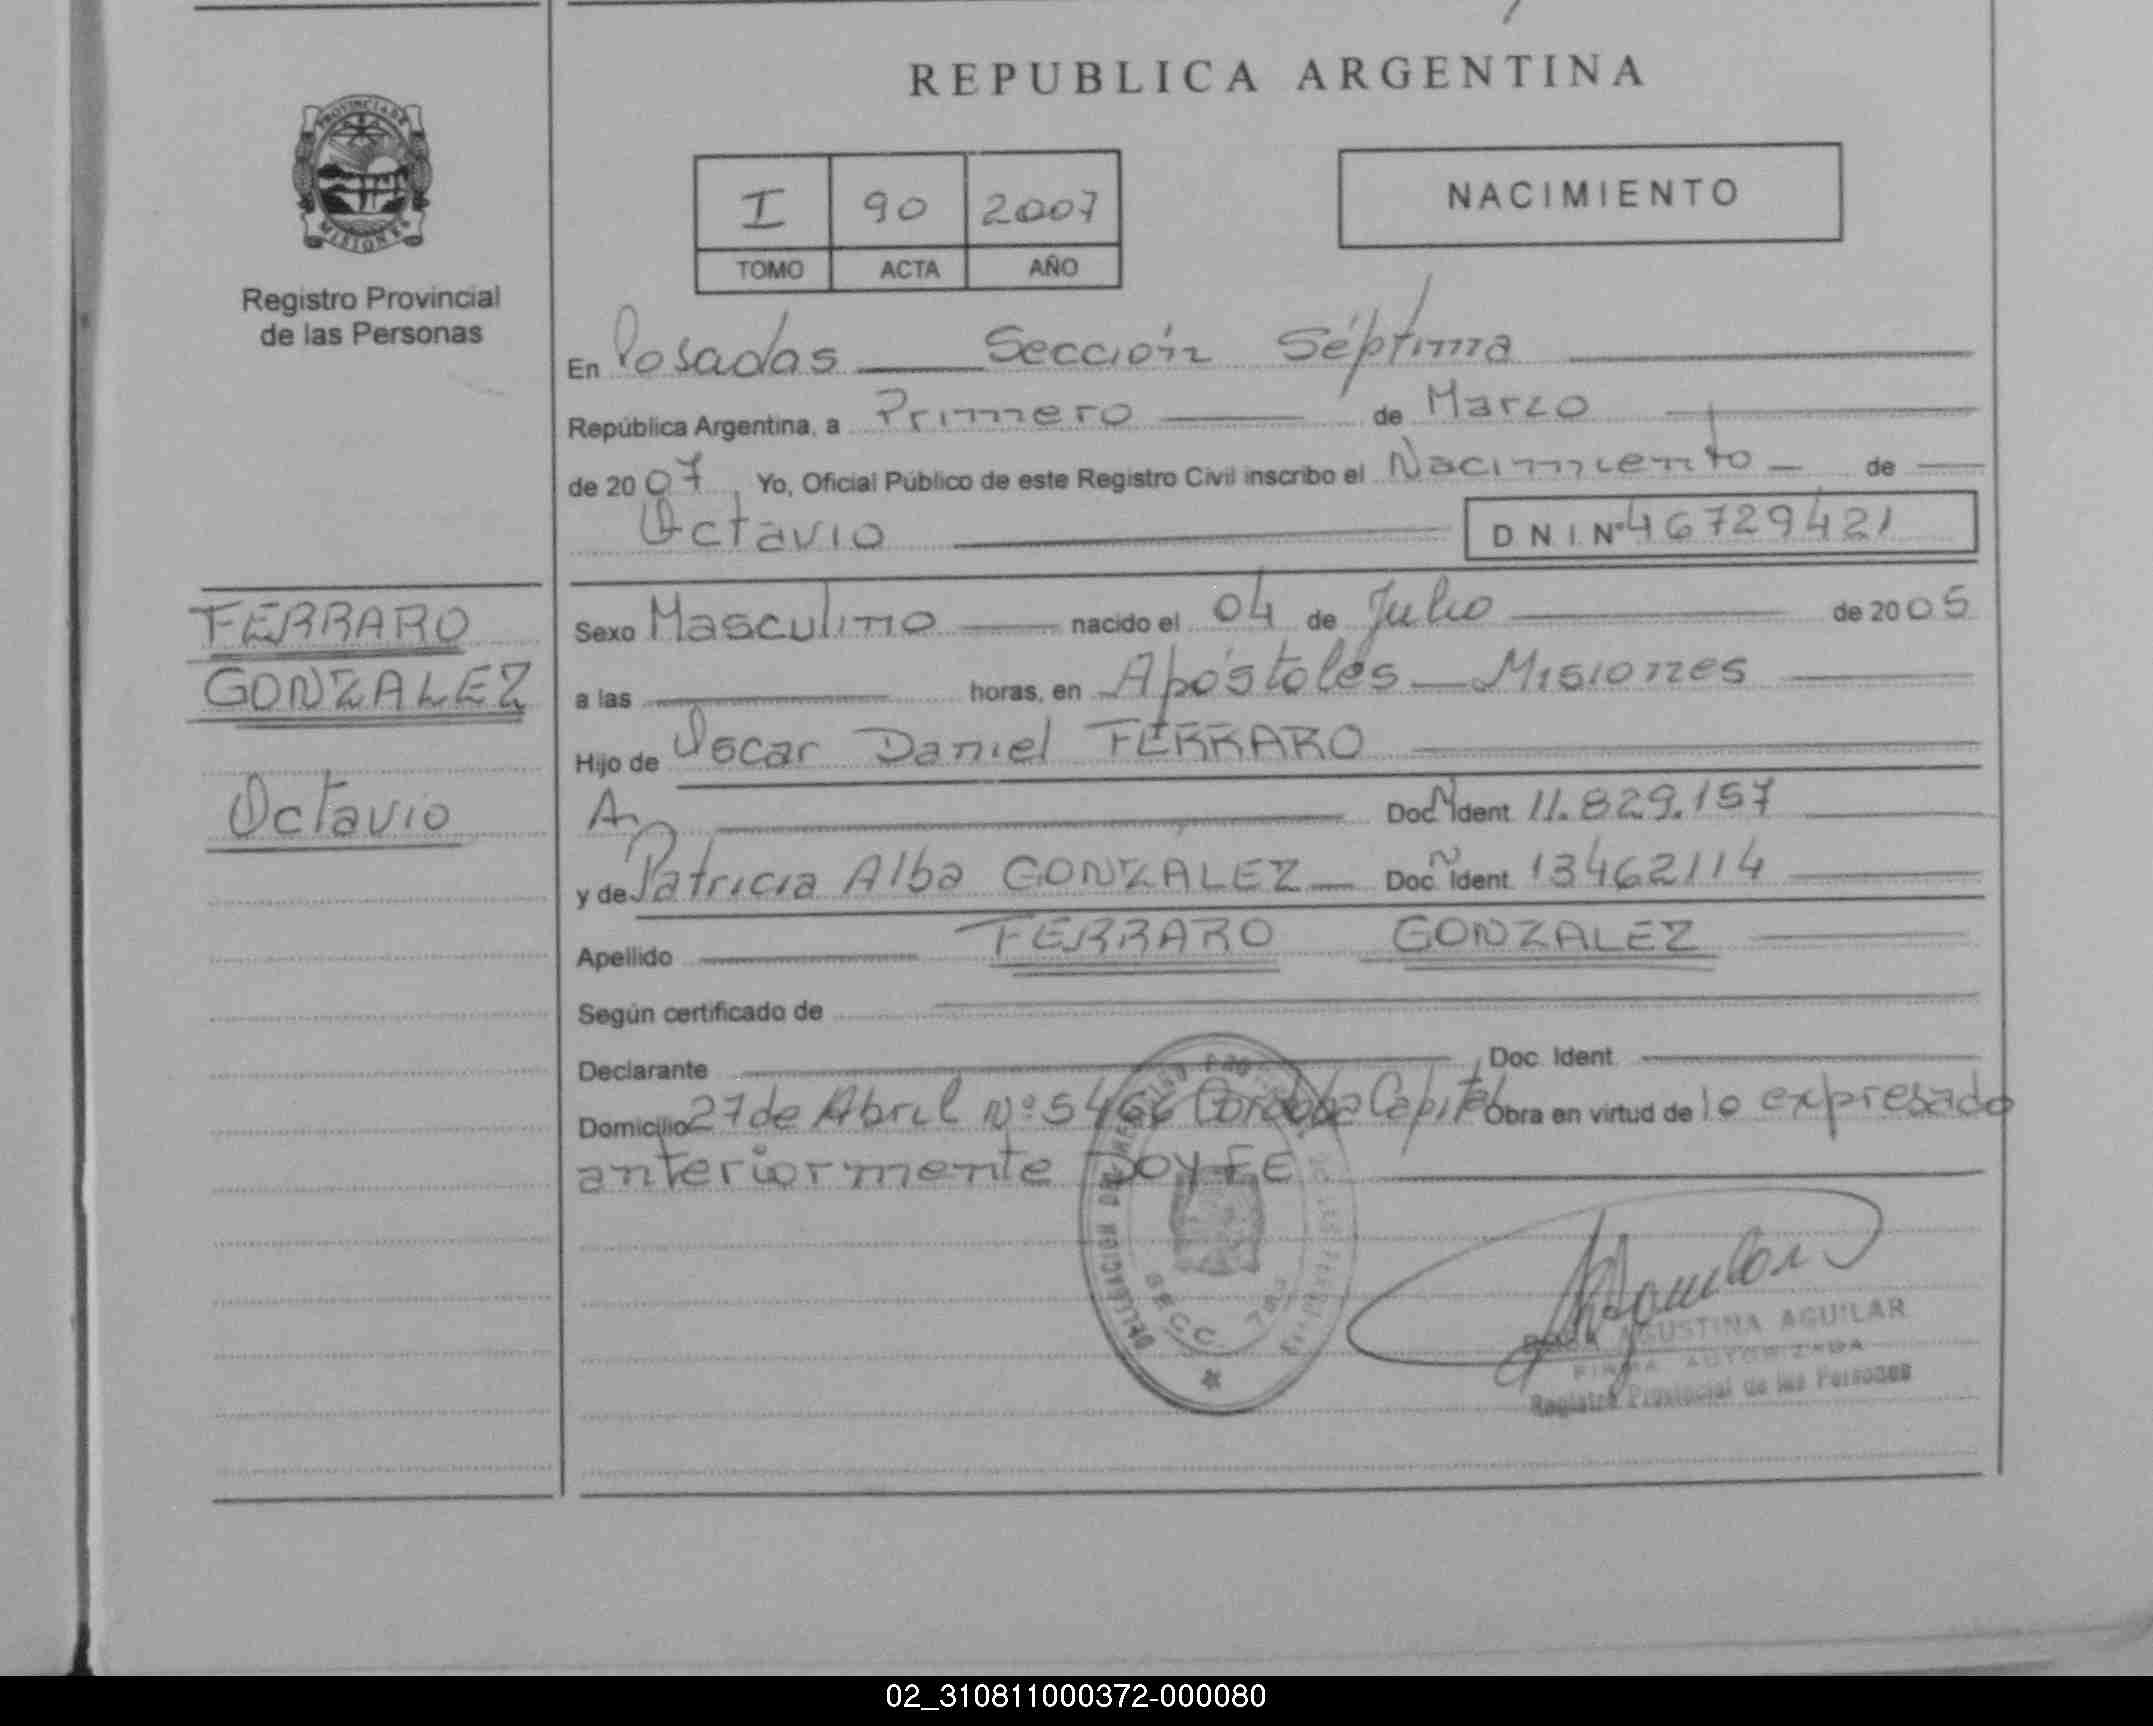 REPUBLICA ARGENTINA
PROVINCIA DE
MISIONES
Registro Provincial
de las Personas
I 90 2007
TOMO ACTA AÑO
NACIMIENTO
En Posadas Sección Séptima
República Argentina, a Primero de Marzo
de 2007, Yo, Oficial Público de este Registro Civil inscribo el Nacimiento de
Octavio D N I Nº 46729421
FERRARO
GONZALEZ
Octavio
Sexo Masculino nacido el 04 de Julio de 2005
a las horas, en Apóstoles Misiones
Hijo de Oscar Daniel FERRARO
A. Doc Ident. 11.829.157
y de Patricia Alba GONZALEZ Doc Ident. 13462114
Apellido FERRARO GONZALEZ
Según certificado de
Declarante Doc. Ident.
Domicilio 27 de Abril Nº 5466 Cordoba Capital Obra en virtud de lo expresado
anteriormente DOY FE
DELEGACION
SECC. 7ma
AGUSTINA AGUILAR
FIRMA AUTORIZADA
Registro Provincial de las Personas
02_310811000372-000080